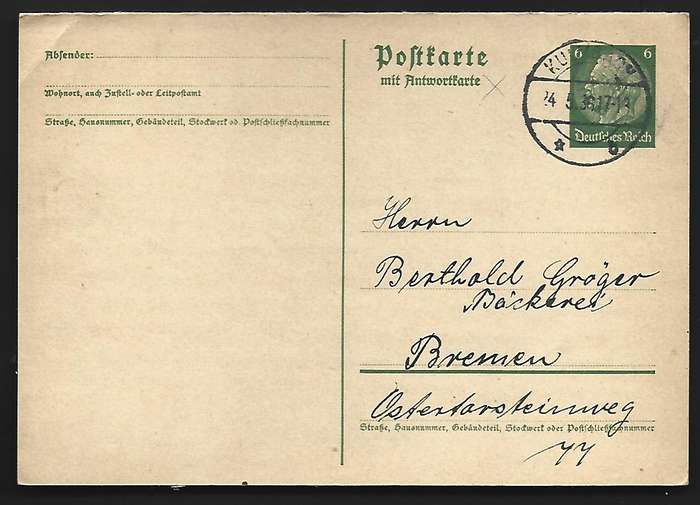 Absender:
Wohnort, auch Zustell- oder Leitpostamt
Straße, Hausnummer, Gebäudeteil, Stockwerk od. Postschließfachnummer
Postkarte
mit Antwortkarte
6 6
24.5.36.17-18
Deutsches Reich
Herrn
Berthold Gröger
Bäckerei
Bremen
Ostertorsteinweg
Straße, Hausnummer, Gebäudeteil, Stockwerk oder Postschließfachnummer
77